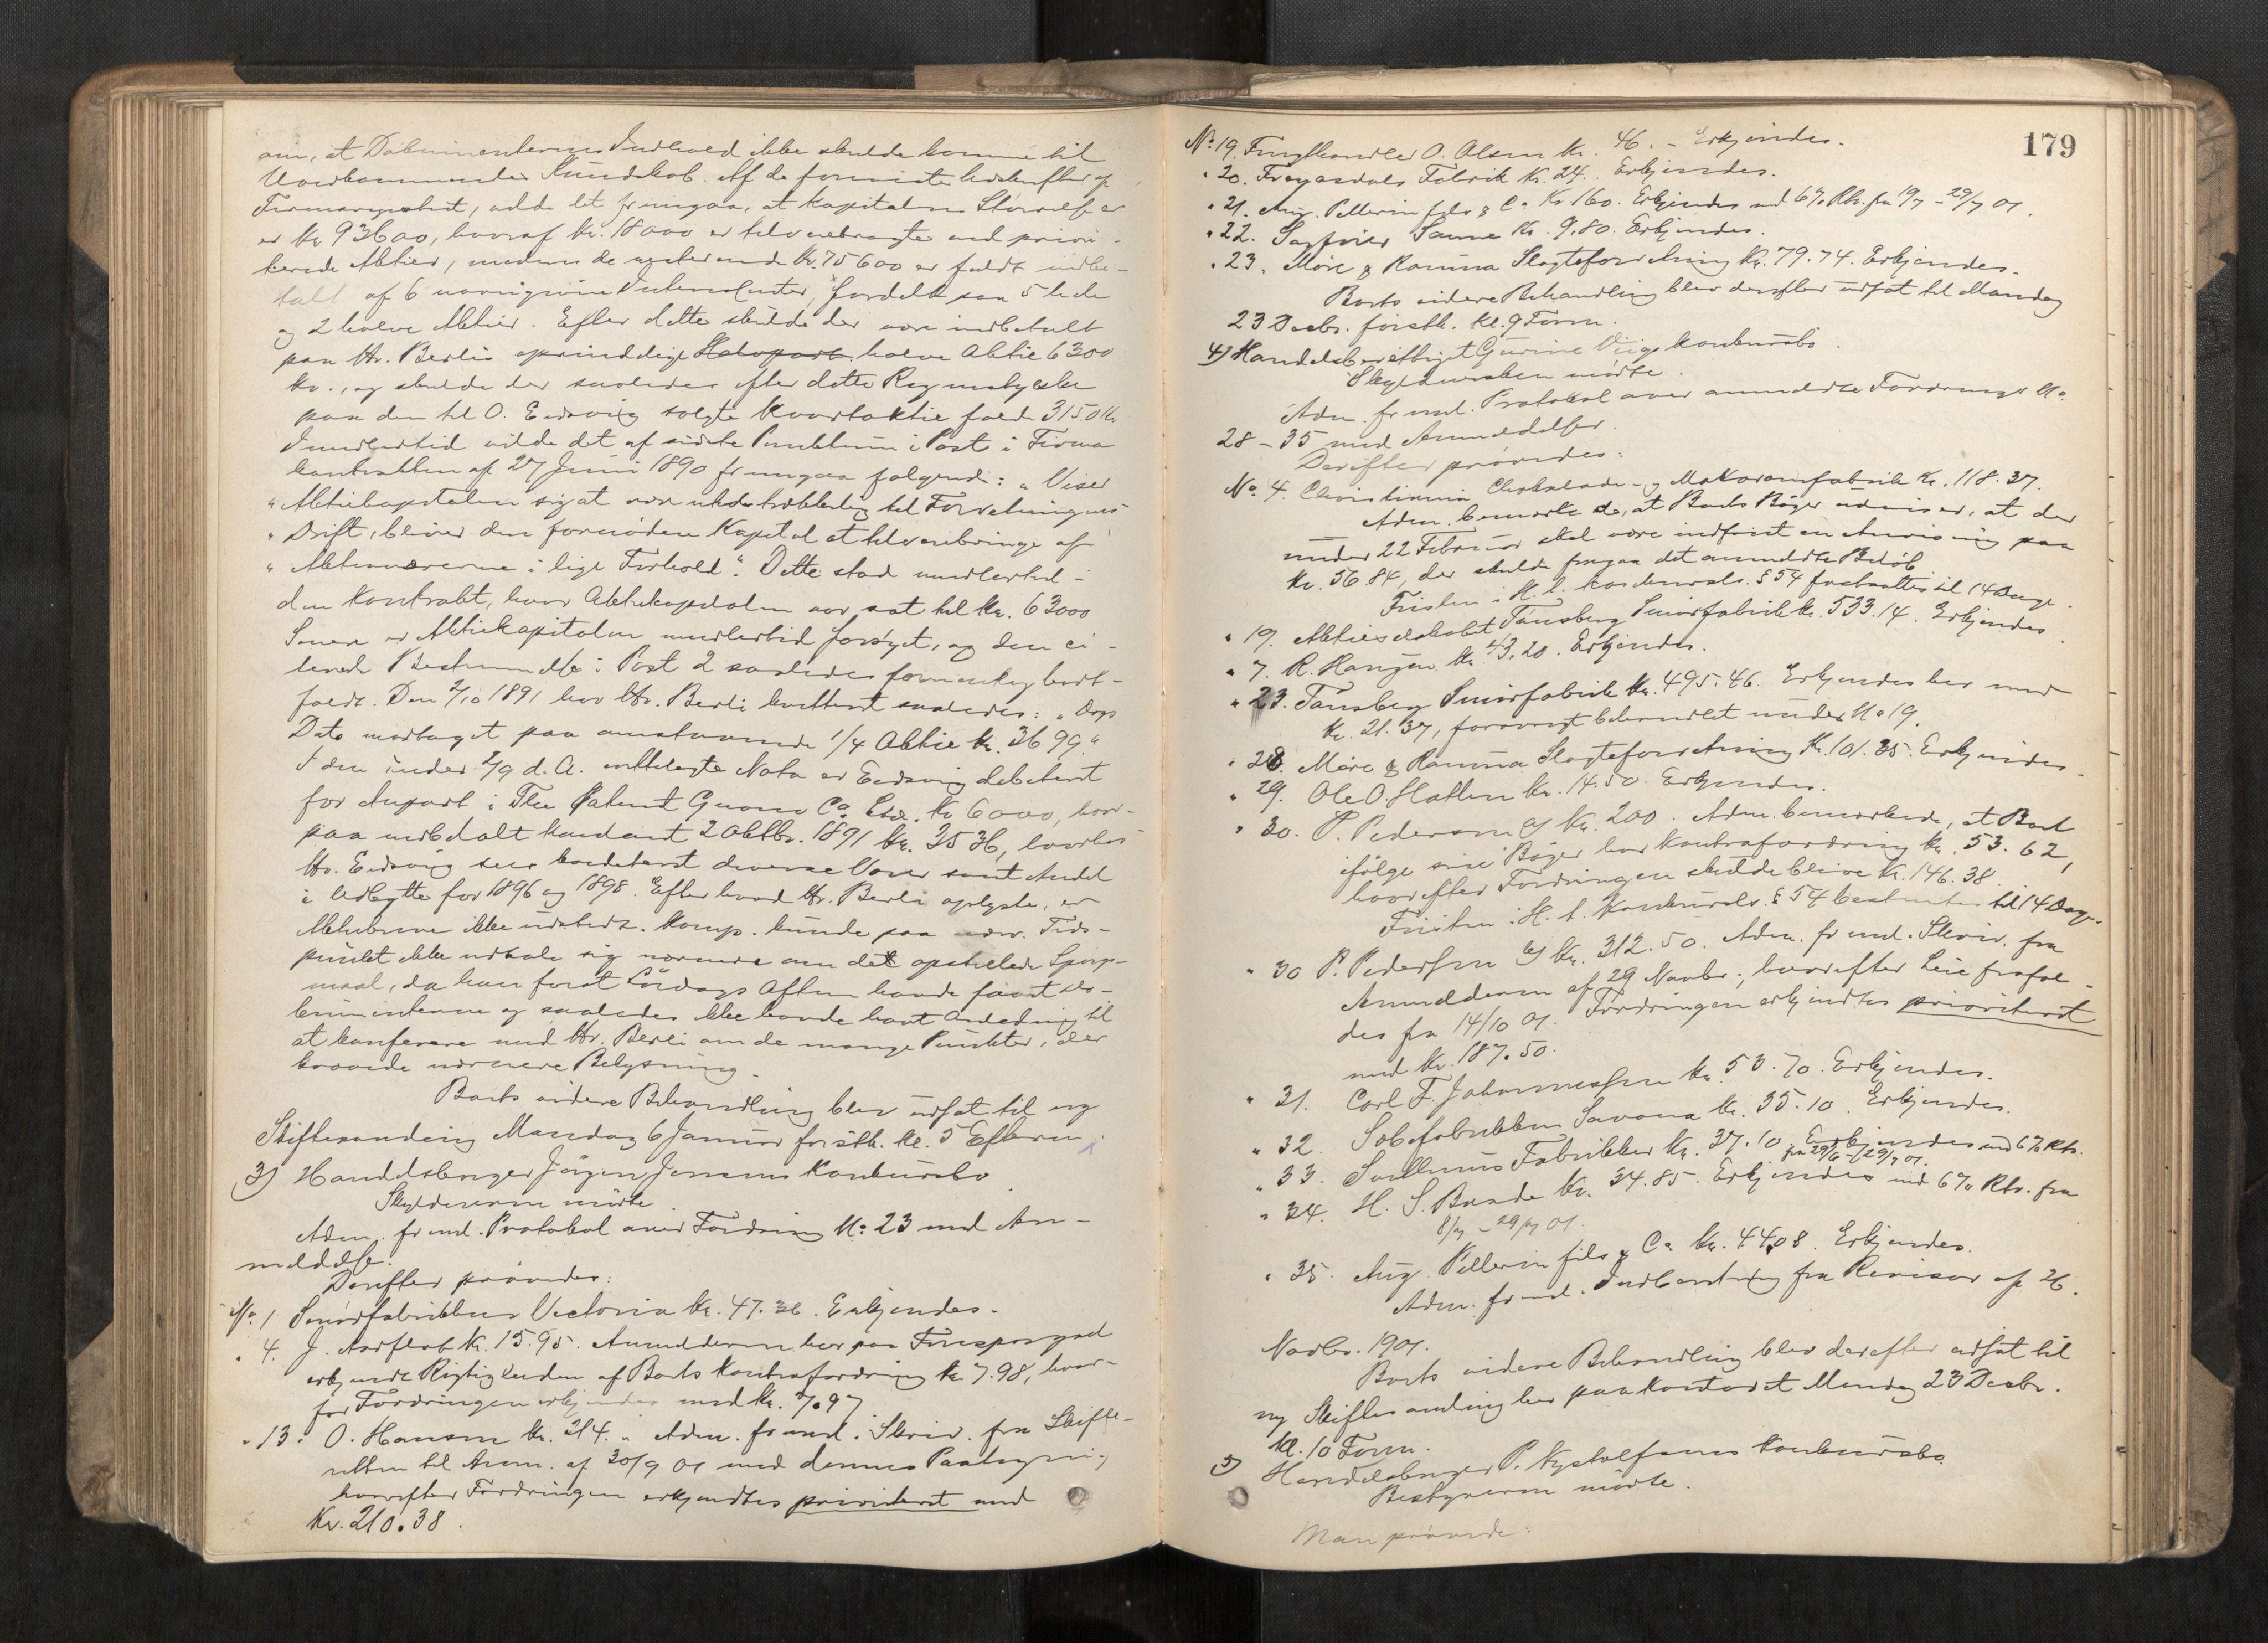 om, at Dokumenternes Indhold ikke skulde komme til
Uvedkommendes Kundskab. Af de forniste Udskrifter af
Firmaregistret, vilde let fremgaa, at Kapitalens Størrelse er
er Kr 93600, hvoraf Kr. 18000 er tilveiebragte ved priori-
terede Aktier, medens de resterende Kr. 75600 er fuldt indbe-
talt af 6 navngivne Interessenter, fordelt paa 5 hele
og 2 halve Aktier. Efter dette skulde der være indbetalt
paa Hr. Berlis oprindelige halve Aktie 6300
Kr., og skulde der saaledes efter dette Regnestykke
paa den til O. Endsvig solgte Kvartaktie falde 3150 Kr
Imidlertid vilde det af sidste Punktum i Post i Firma
kontrakten af 27 Juni 1890 fremgaa følgende: "Viser
"Aktiekapitalen sig at være utilstrækkelig til Forretningens
"Drift, bliver den fornødne Kapital at tilveiebringe af
"Aktionærerne i lige Forhold". Dette stod imidlertid i
den Kontrakt, hvor Aktiekapitalen var sat til Kr. 63000
Senere er Aktiekapitalen imidlertid forøget, og den ci-
terede Bestemmelse i Post 2 saaledes formentlig bort-
faldt. Den 2/10 1891 har Hr. Berli kvitteret saaledes: "Dags
Dato modtaget paa omstaaende 1/4 Aktie Kr. 3699."
I den under 2/9 d. A. omtalte Nota er Endsvig debiteret
for Anpart i The Patent Guano Co. Kr 6000, hvor-
paa indbetalt kontant 2 Oktbr. 1891 Kr. 3536, hvorhos
Hr. Endsvig sees krediteret diverse Varer samt Andel
i Udbytte for 1896 og 1898. Efter hvad Hr. Berli oplyste, er
Aktiebreve ikke udstedt. Komp. kunde paa nærv. Tids-
punkt ikke udtale sig nærmere om det opstillede Spørgs-
maal, da han først Lørdags Aften havde faaet Do-
kumenterne og saaledes ikke havde havt Anledning til
at konferere med Hr. Berli om de mange Punkter, der
krævede nærmere Belysning.
Boets videre Behandling blev udsat til ny
Skiftesamling Mandag 6 Januar førstk. Kl. 5 Efterm.
3) Handelsborger Jørgen Jensens Konkursbo
Skyldneren mødte.
Adm. freml. Protokol over Fordring No 23 med An-
meldelse.
Derefter prøvedes:
No. 1 Smørfabrikken Victoria Kr. 47.36. Erkjendes.
" 4. J. Aarflot Kr. 15.95. Anmelderen har paa Forespørgsel
erkjendt Rigtigheden af Boets Kontrafordring Kr 7.98, hvor-
for Fordringen erkjendes med Kr. 7.97
" 13. O. Hansen Kr. 214. " Adm. freml. Skriv. fra Skifte-
retten til Anm. af 30/9 01 med dennes Paategn.,
hvorefter Fordringen erkjendtes prioriteret med
Kr. 210.38.
179
No. 19. Frugthandler O. Olsen Kr. 46. - Erkjendes.
" 20. Frognerdals Fabrik Kr. 24. Erkjendes.
" 21. Aug. Pellerin fils & Co Kr 160. Erkjendes med 6% Rtr. fra 19/7 - 29/7 01.
" 22. Sagfører Sanne Kr. 9.80. Erkjendes.
" 23. Møre & Ramma Slagteforretning Kr. 79.74. Erkjendes.
Boets videre Behandling blev derefter udsat til Mandag
23 Decbr. førstk. Kl. 9 Form.
4) Handelsberettiget Gurine Viigs Konkursbo.
Skyldnersken mødte.
Adm. freml. Protokol over anmeldte Fordringer No
28 - 35 med Anmeldelser.
Derefter prøvedes:
No. 4. Christiania Chokolade- og Makaronifabrik Kr. 118.37.
Adm. bemærkede, at Boets Bøger udviser, at der
under 22 Februar skal være indfriet en Anvisning paa
Kr. 56 84, der skulde fragaa det anmeldte Beløb.
Fristen i H. t. Konkursls. § 54 fastsattes til 14 Dage.
" 19. Aktieselskabet Tønsberg Smørfabrik Kr. 533.14. Erkjendes.
" 7. R. Hangen Kr. 43.20. Erkjendes.
" 23. Tønsberg Smørfabrik Kr. 495.46. Erkjendes her med
Kr. 21.37, forøvrigt behandlet under No 19.
" 28. Møre & Ramma Slagteforretning Kr. 101.35. Erkjendes.
" 29. Ole O. Hatlen Kr. 14.50. Erkjendes.
" 30. P. Pedersen Kr. 200. Adm. bemærkede, at Boet
ifølge sine Bøger har Kontrafordring Kr. 53.62,
hvorefter Fordringen skulde blive Kr. 146.38.
Fristen i H. t. Konkursls. § 54 bestemtes til 14 Dage.
" 30 P. Pedersen Kr. 312.50. Adm. freml. Skriv. fra
Anmelderen af 29 Novbr., hvorefter Leie frafal-
des fra 14/10 01. Fordringen erkjendtes prioriteret
med Kr. 187.50.
" 31. Carl F. Johannessen Kr. 53.70. Erkjendes.
" 32. Sæbefabrikken Savona Kr. 35.10. Erkjendes.
" 33. Fabrikker Kr. 37.10. Erkjendes med 6% Rtr.
fra 29/6 - 29/7 01.
" 34. H. S. Kr. 34.85. Erkjendes med 6% Rtr. fra
8/7 - 29/7 01.
" 35. Aug. Pellerin fils & Co Kr. 44.08. Erkjendes.
Adm. freml. Indberetning fra Revisor af 26.
Novbr. 1901.
Boets videre Behandling blev derefter udsat til
ny Skiftesamling her paa Kontoret Mandag 23 Decbr.
Kl. 10 Form.
5) Handelsborger P. Konkursbo.
Bestyreren mødte.
Man prøvede: